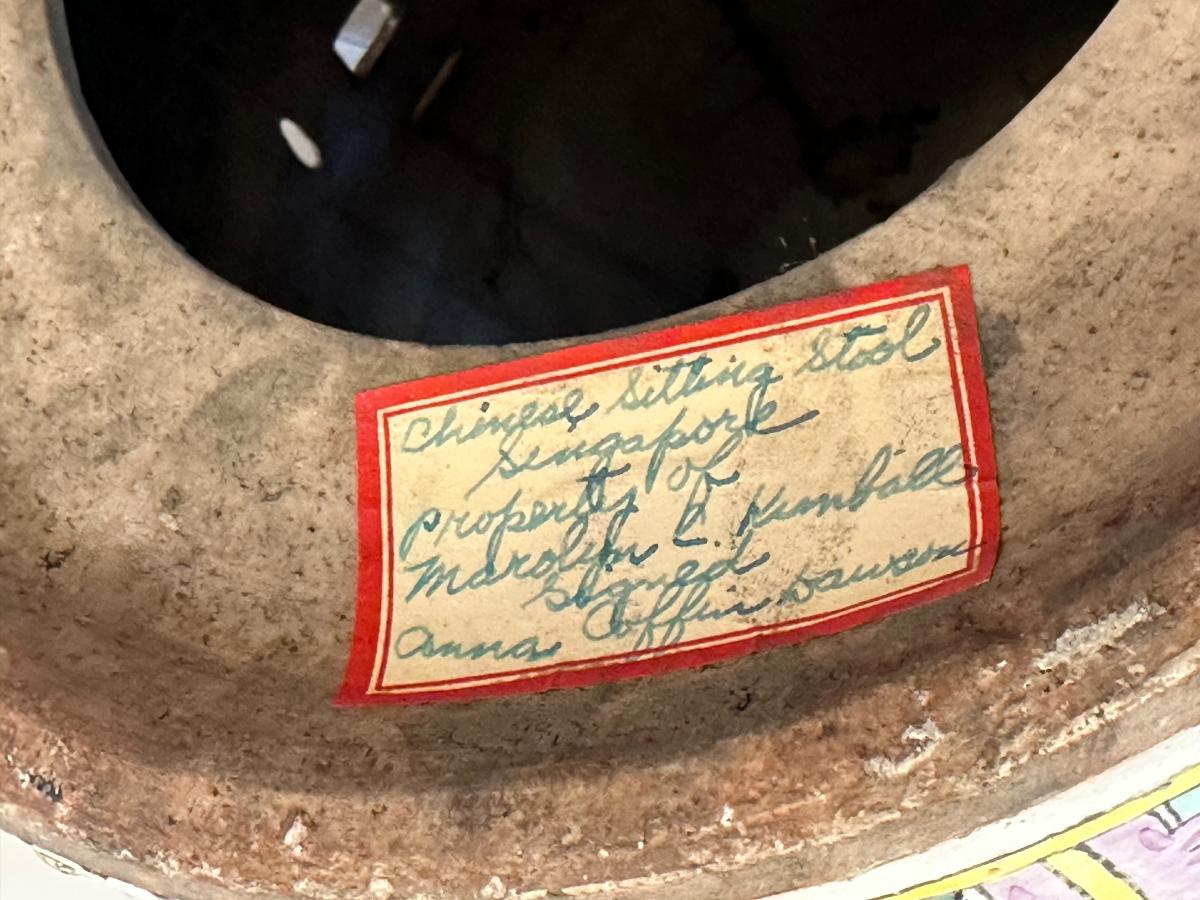 Chinese Sitting Stool
Singapore
Property of
Marolyn L. Kimball
signed
Anna Coffin Dawson